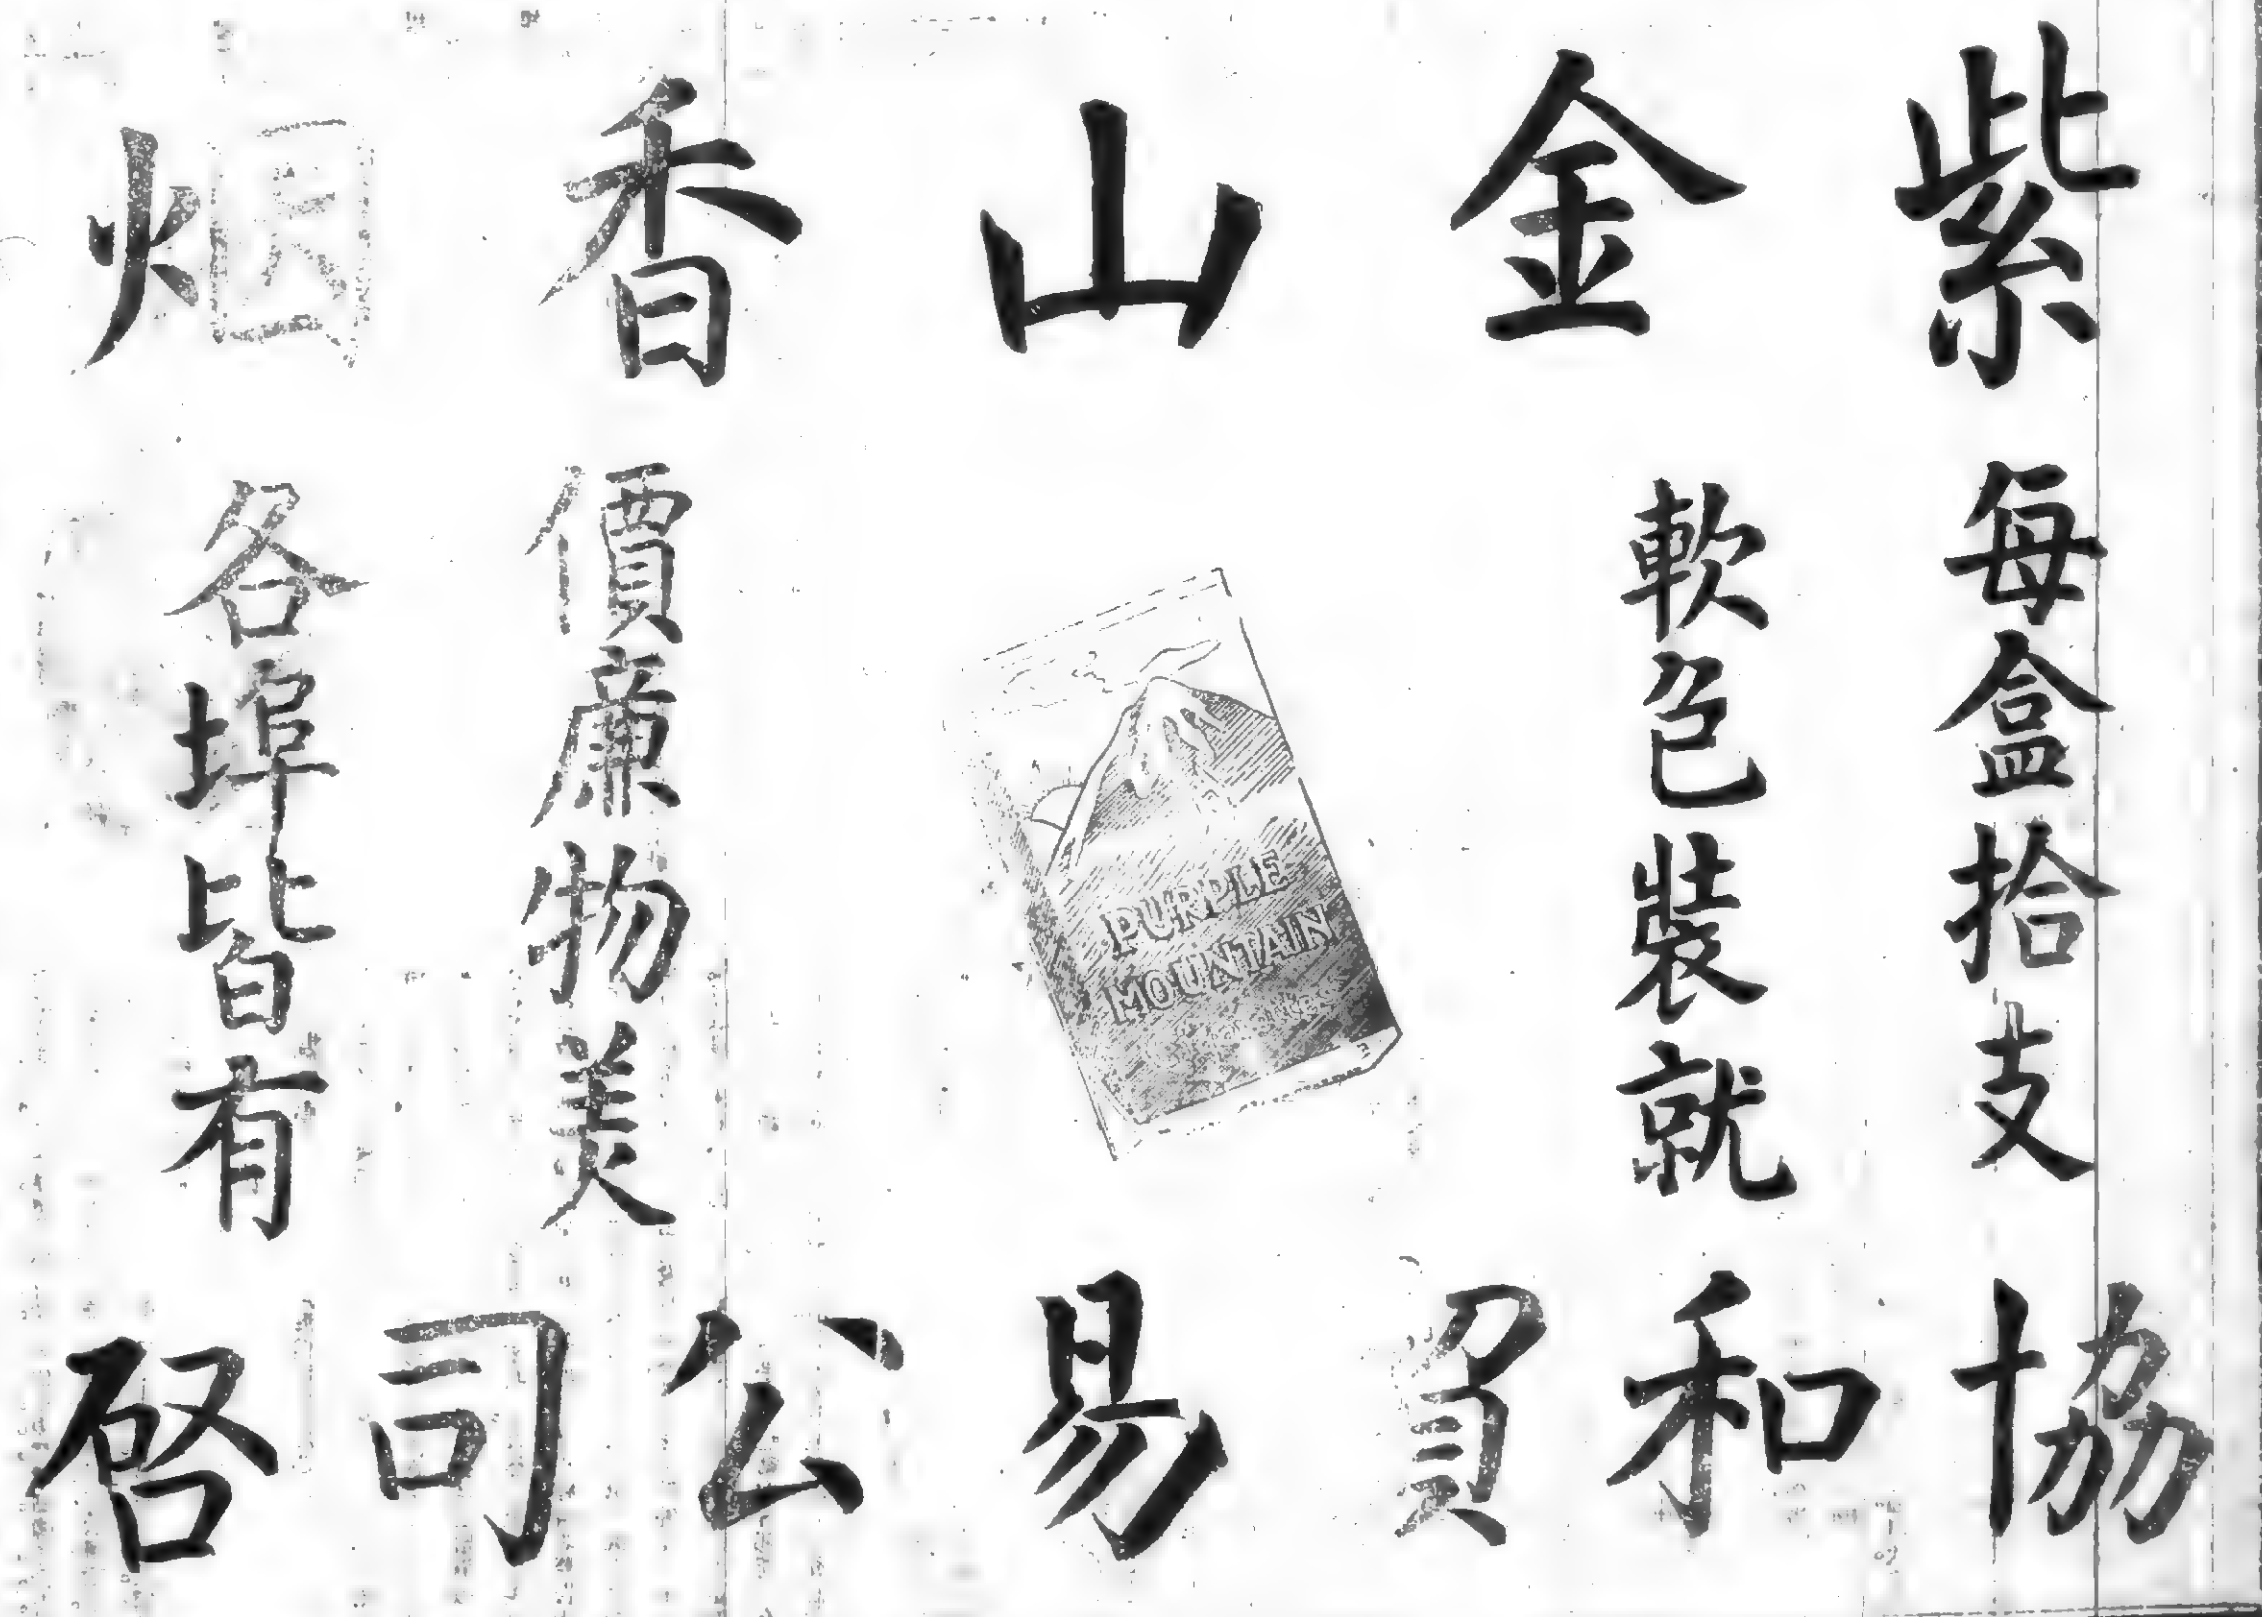 紫金山香烟
每盒拾支
軟包裝就
PURPLE
MOUNTAIN
價廉物美
各埠皆有
協和貿易公司啓